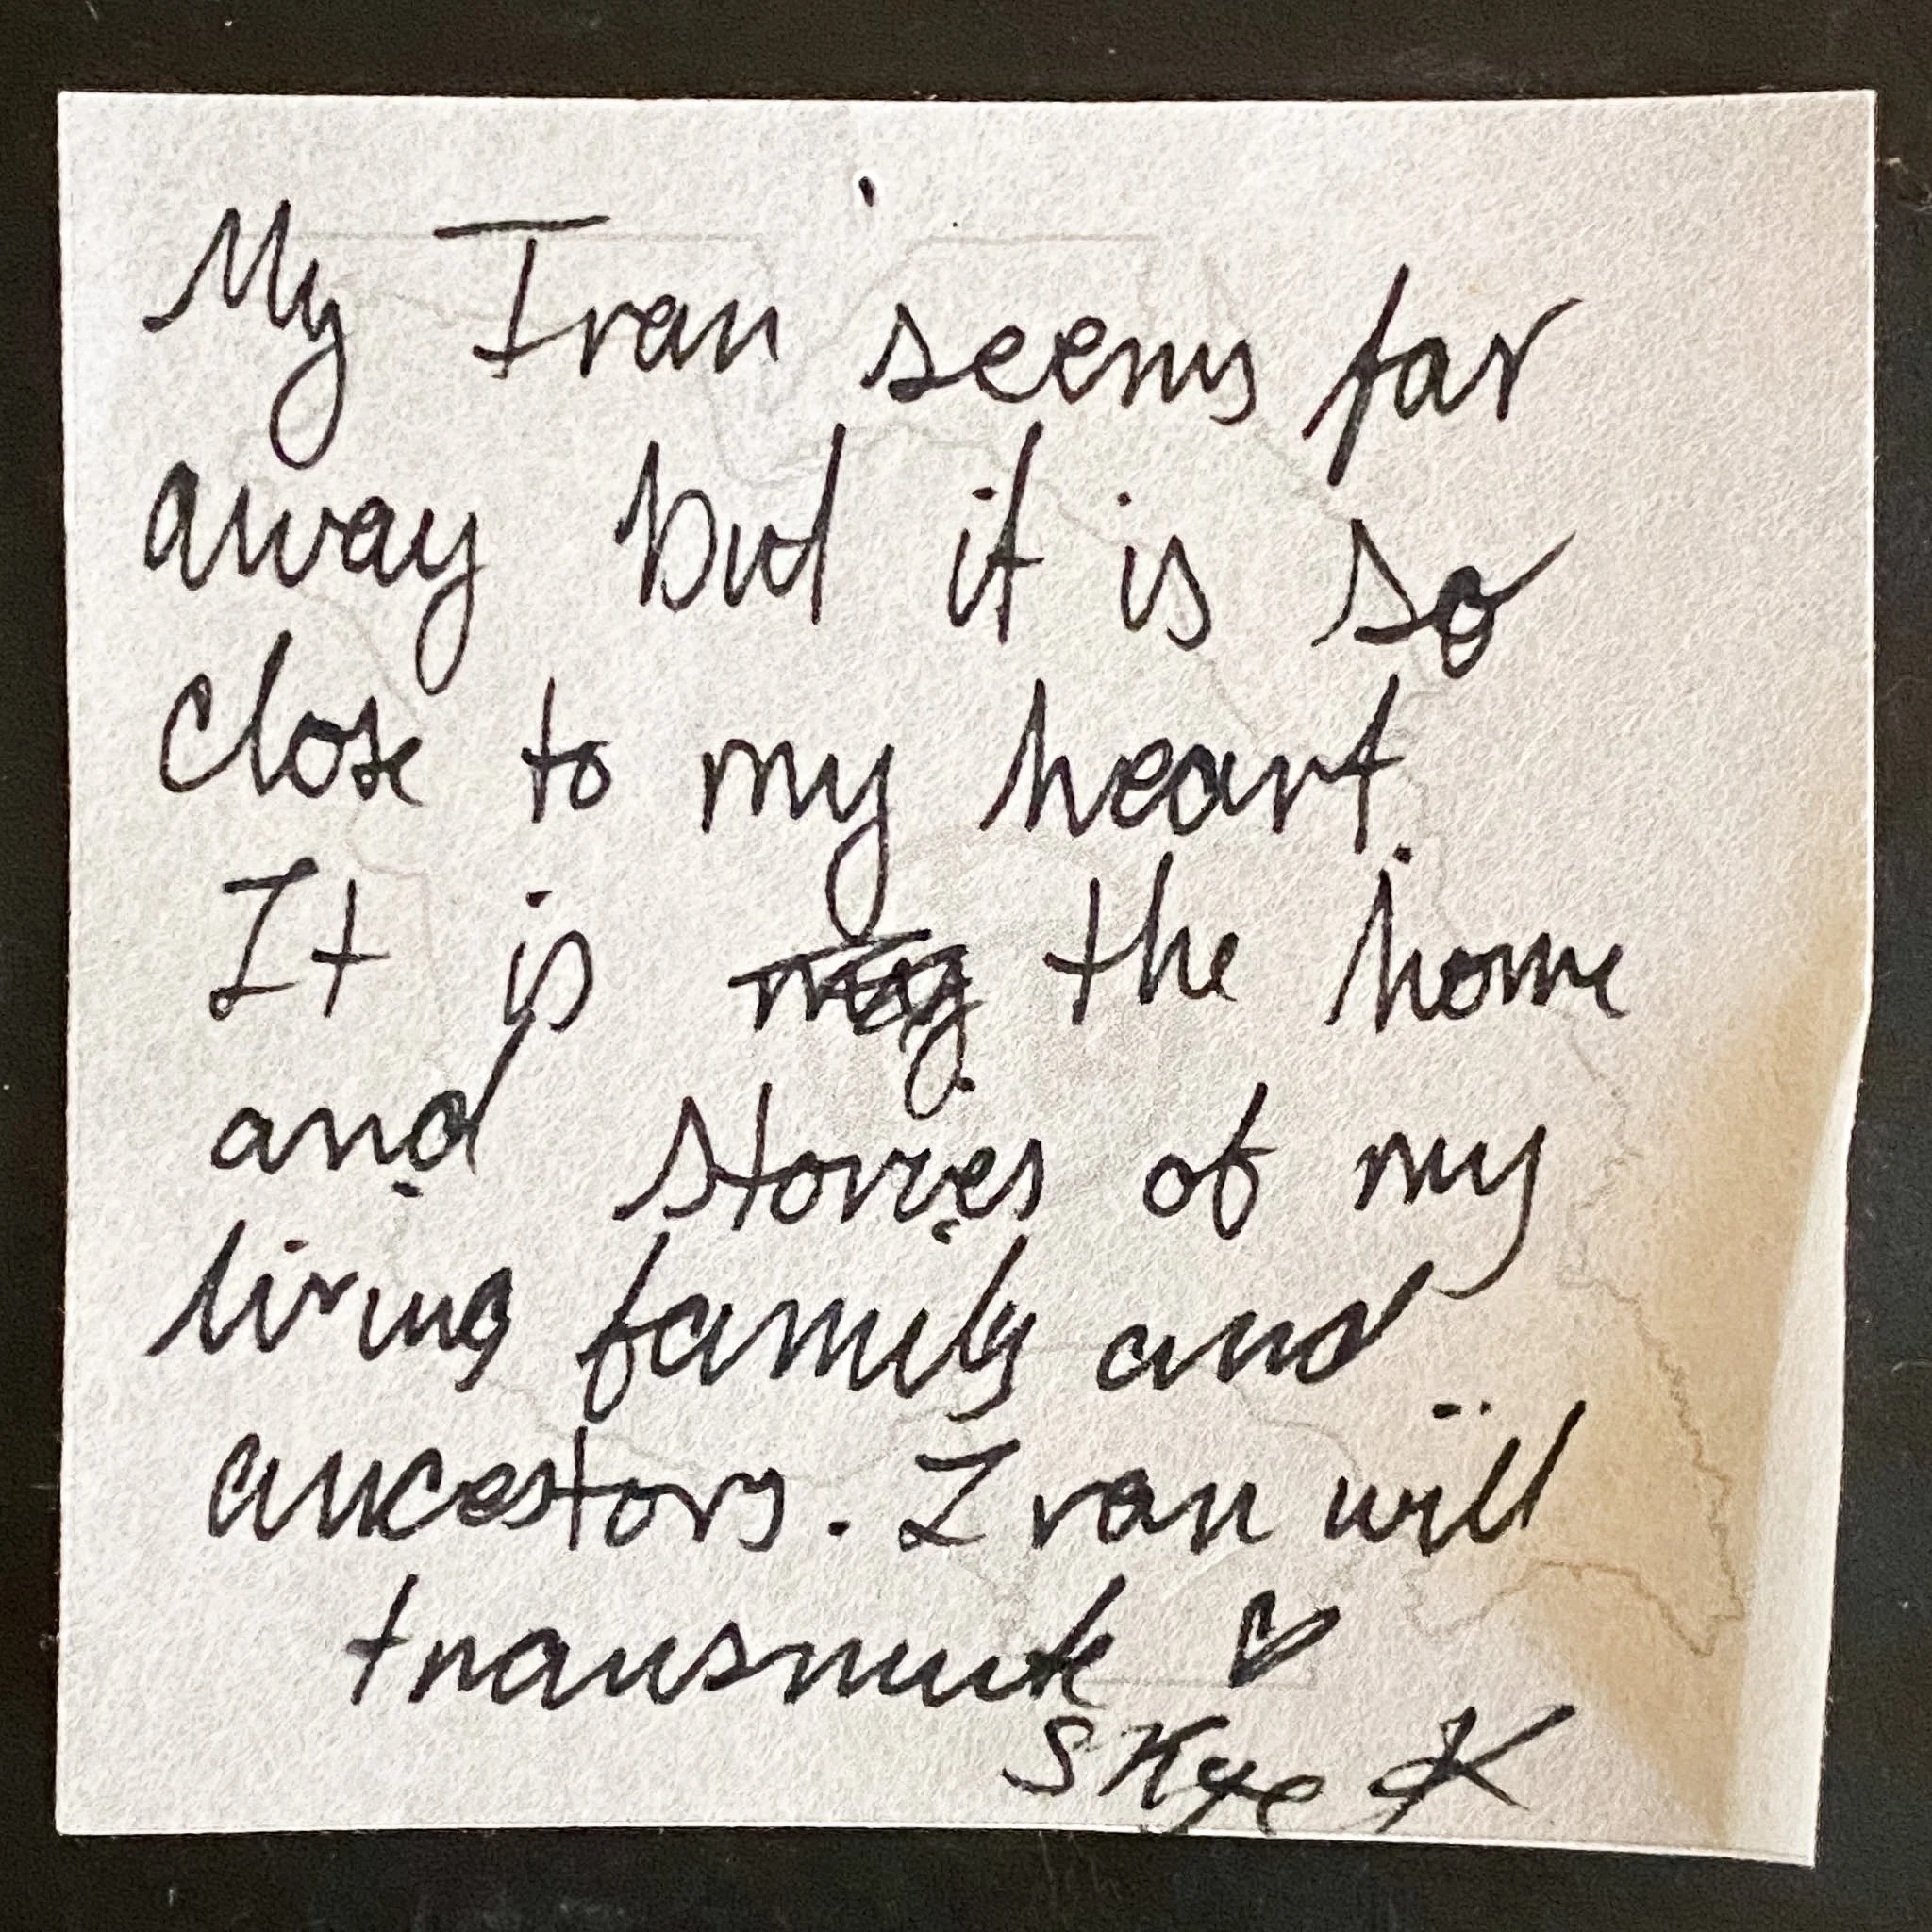 My Iran seems far
away but it is so
close to my heart.
It is the home
and stories of my
living family and
ancestors. Iran will
transmute ♡
Skye K